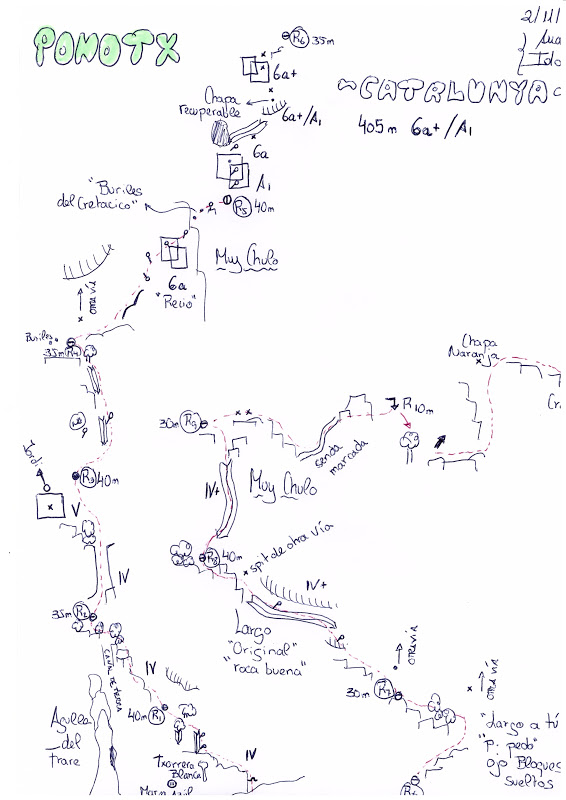 PONOTX
2/11/
R6 35m
6a+
~CATALUNYA
405m 6a+/A1
Chapa
recuperable
6a+/A1
6a
A1
R5 40m
"Buriles
del Cretacico"
Muy Chulo
6a
"Recio"
otra vía
Buriles
35m R4
Chapa
Naranja
NO
30m R9
R10m
senda
marcada
Jordi
R3 40m
V
IV+
Muy Chulo
IV
R8 40m
spit de otra vía
IV+
35m R2
Largo
"Original"
"roca buena"
CANAL DE TIERRA
IV
otra vía
otra vía
30m R7
40m R1
Agulla
del
frare
Txorrera
Blanca
IV
"Largo a tú
"P. pedo"
ojo Bloques
sueltos